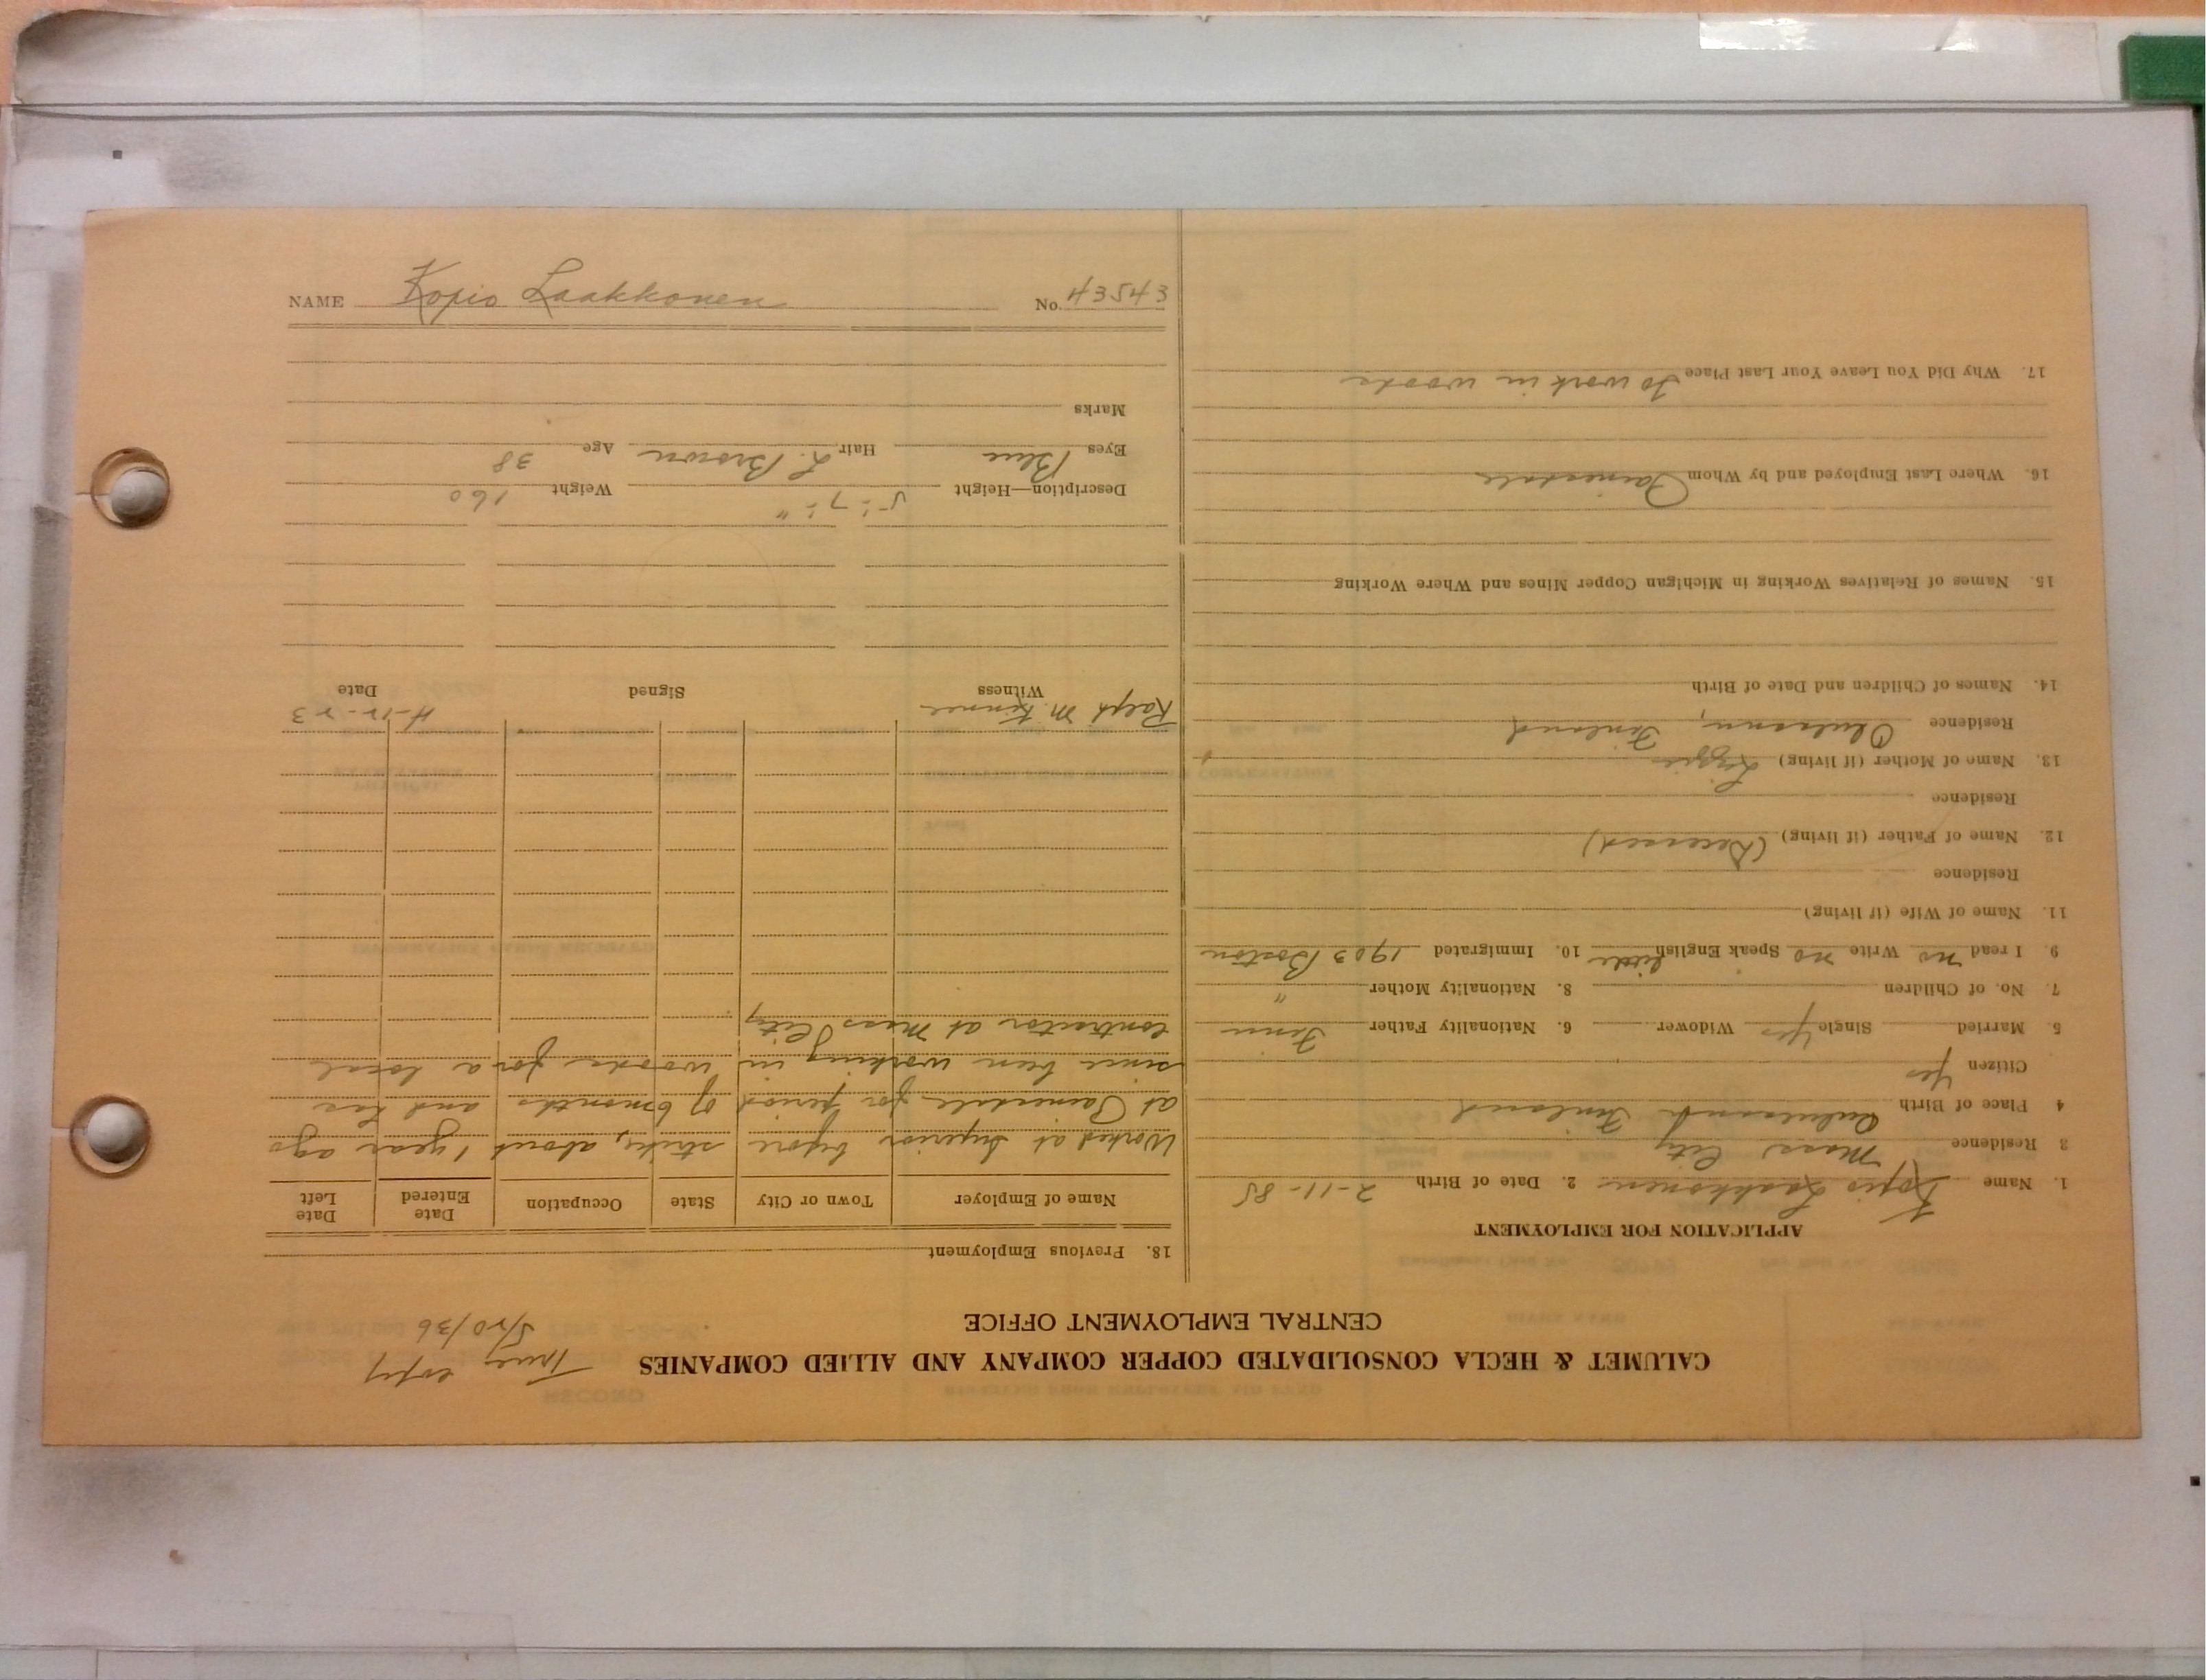 CALUMET & HECLA CONSOLIDATED COPPER COMPANY AND ALLIED COMPANIES
True copy
5/20/36
CENTRAL EMPLOYMENT OFFICE
APPLICATION FOR EMPLOYMENT
1. Name Kopio Laakkonen 2. Date of Birth 2-11-85
3 Residence Mass City
4 Place of Birth Finland
Citizen Yes
5. Married Single Yes Widower 6. Nationality Father Finn
7. No. of Children 8. Nationality Mother "
9. I read no Write no Speak English little 10. Immigrated 1903 Boston
11. Name of Wife (if living)
Residence
12. Name of Father (if living) (Deceased)
Residence
13. Name of Mother (if living) Lizzie
Residence Finland
14. Names of Children and Date of Birth
15. Names of Relatives Working in Michigan Copper Mines and Where Working
16. Where Last Employed and by Whom Painesdale
17. Why Did You Leave Your Last Place To work in woods
18. Previous Employment
Name of Employer Town or City State Occupation Date Entered Date Left
Worked at Superior before strike, about 1 year ago
at Painesdale for period of 6 months and has
since been working in woods for a local
contractor at Mass City
Ralph M. 4-12-23
Witness Signed Date
Description—Height 5'-7" Weight 160
Eyes Blue Hair L. Brown Age 38
Marks
NAME Kopio Laakkonen No. 43543